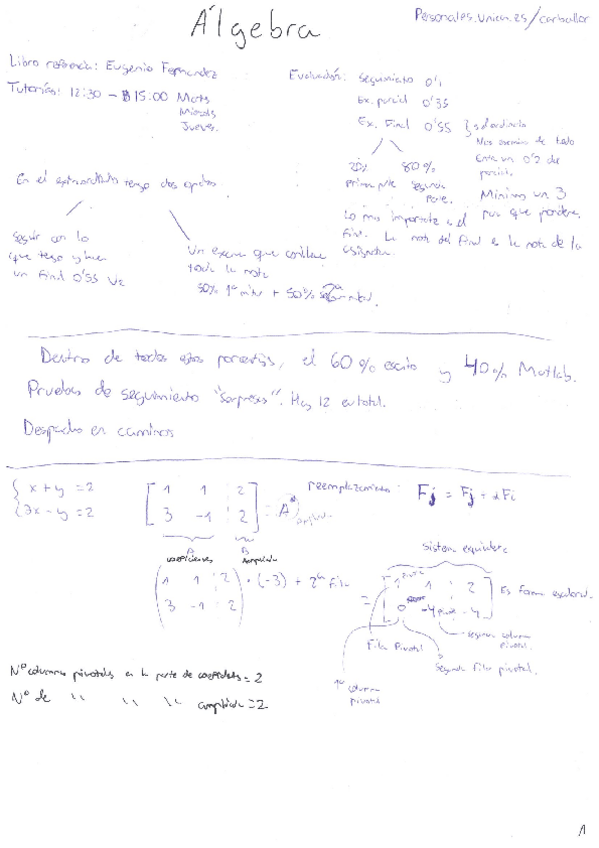 Álgebra
Personales.unican.es/carballor
Libro referencia: Eugenio Fernandez
Tutorías: 12:30 - 15:00 Marts
Miercols
Jueves.
Evaluación: Seguimiento 0'1
Ex. parcial 0'35
Ex. Final 0'55
20% 80%
primera parte Segunda parte.
Mínimo un 3
para que ponderen
Lo mas importante es el
final. La nota del final es la nota de la
asignatura.
En el extraordinario tengo dos opcions
Seguir con lo
que tengo y hacer
un final 0'55
Un examen que conlleve
toda la nota
50% 1ª mitad + 50% segunda mitad.
Dentro de todos estos porcentajes, el 60% escrito y 40% Matlab.
Pruebas de seguimiento "Sorpresas". Hay 12 en total.
Despacho en caminos
x + y = 2
3x - y = 2
1 1 2
3 -1 2
= A*
reemplazamiento: Fj = Fj + αFi
A B
coeficientes Ampliada
1 1 2
3 -1 2
· (-3) + 2ª Fila
Sistema equivalente
= 1 1 2
0 -4 -4
Es forma escalonada.
Fila Pivotal
segunda columna
pivotal.
Segunda fila pivotal.
1ª columna
pivotal
Nº columnas pivotales en la parte de coeficientes = 2
Nº de " " " ampliada = 2
1